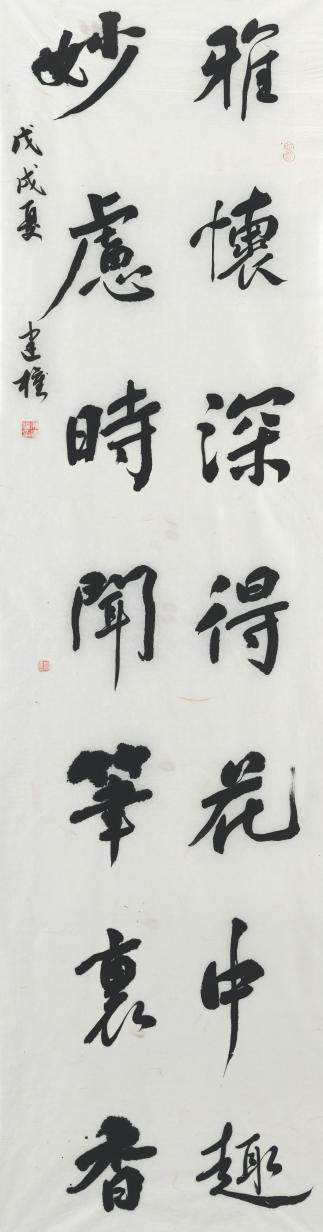 雅懷深得花中趣
妙慮時聞筆裏香
戊戌夏 建權